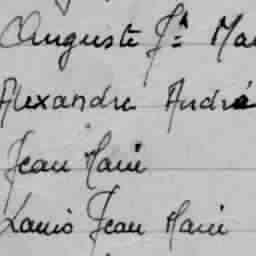 Auguste Jn Ma
Alexandre André
Jean Marie
Louis Jean Marie